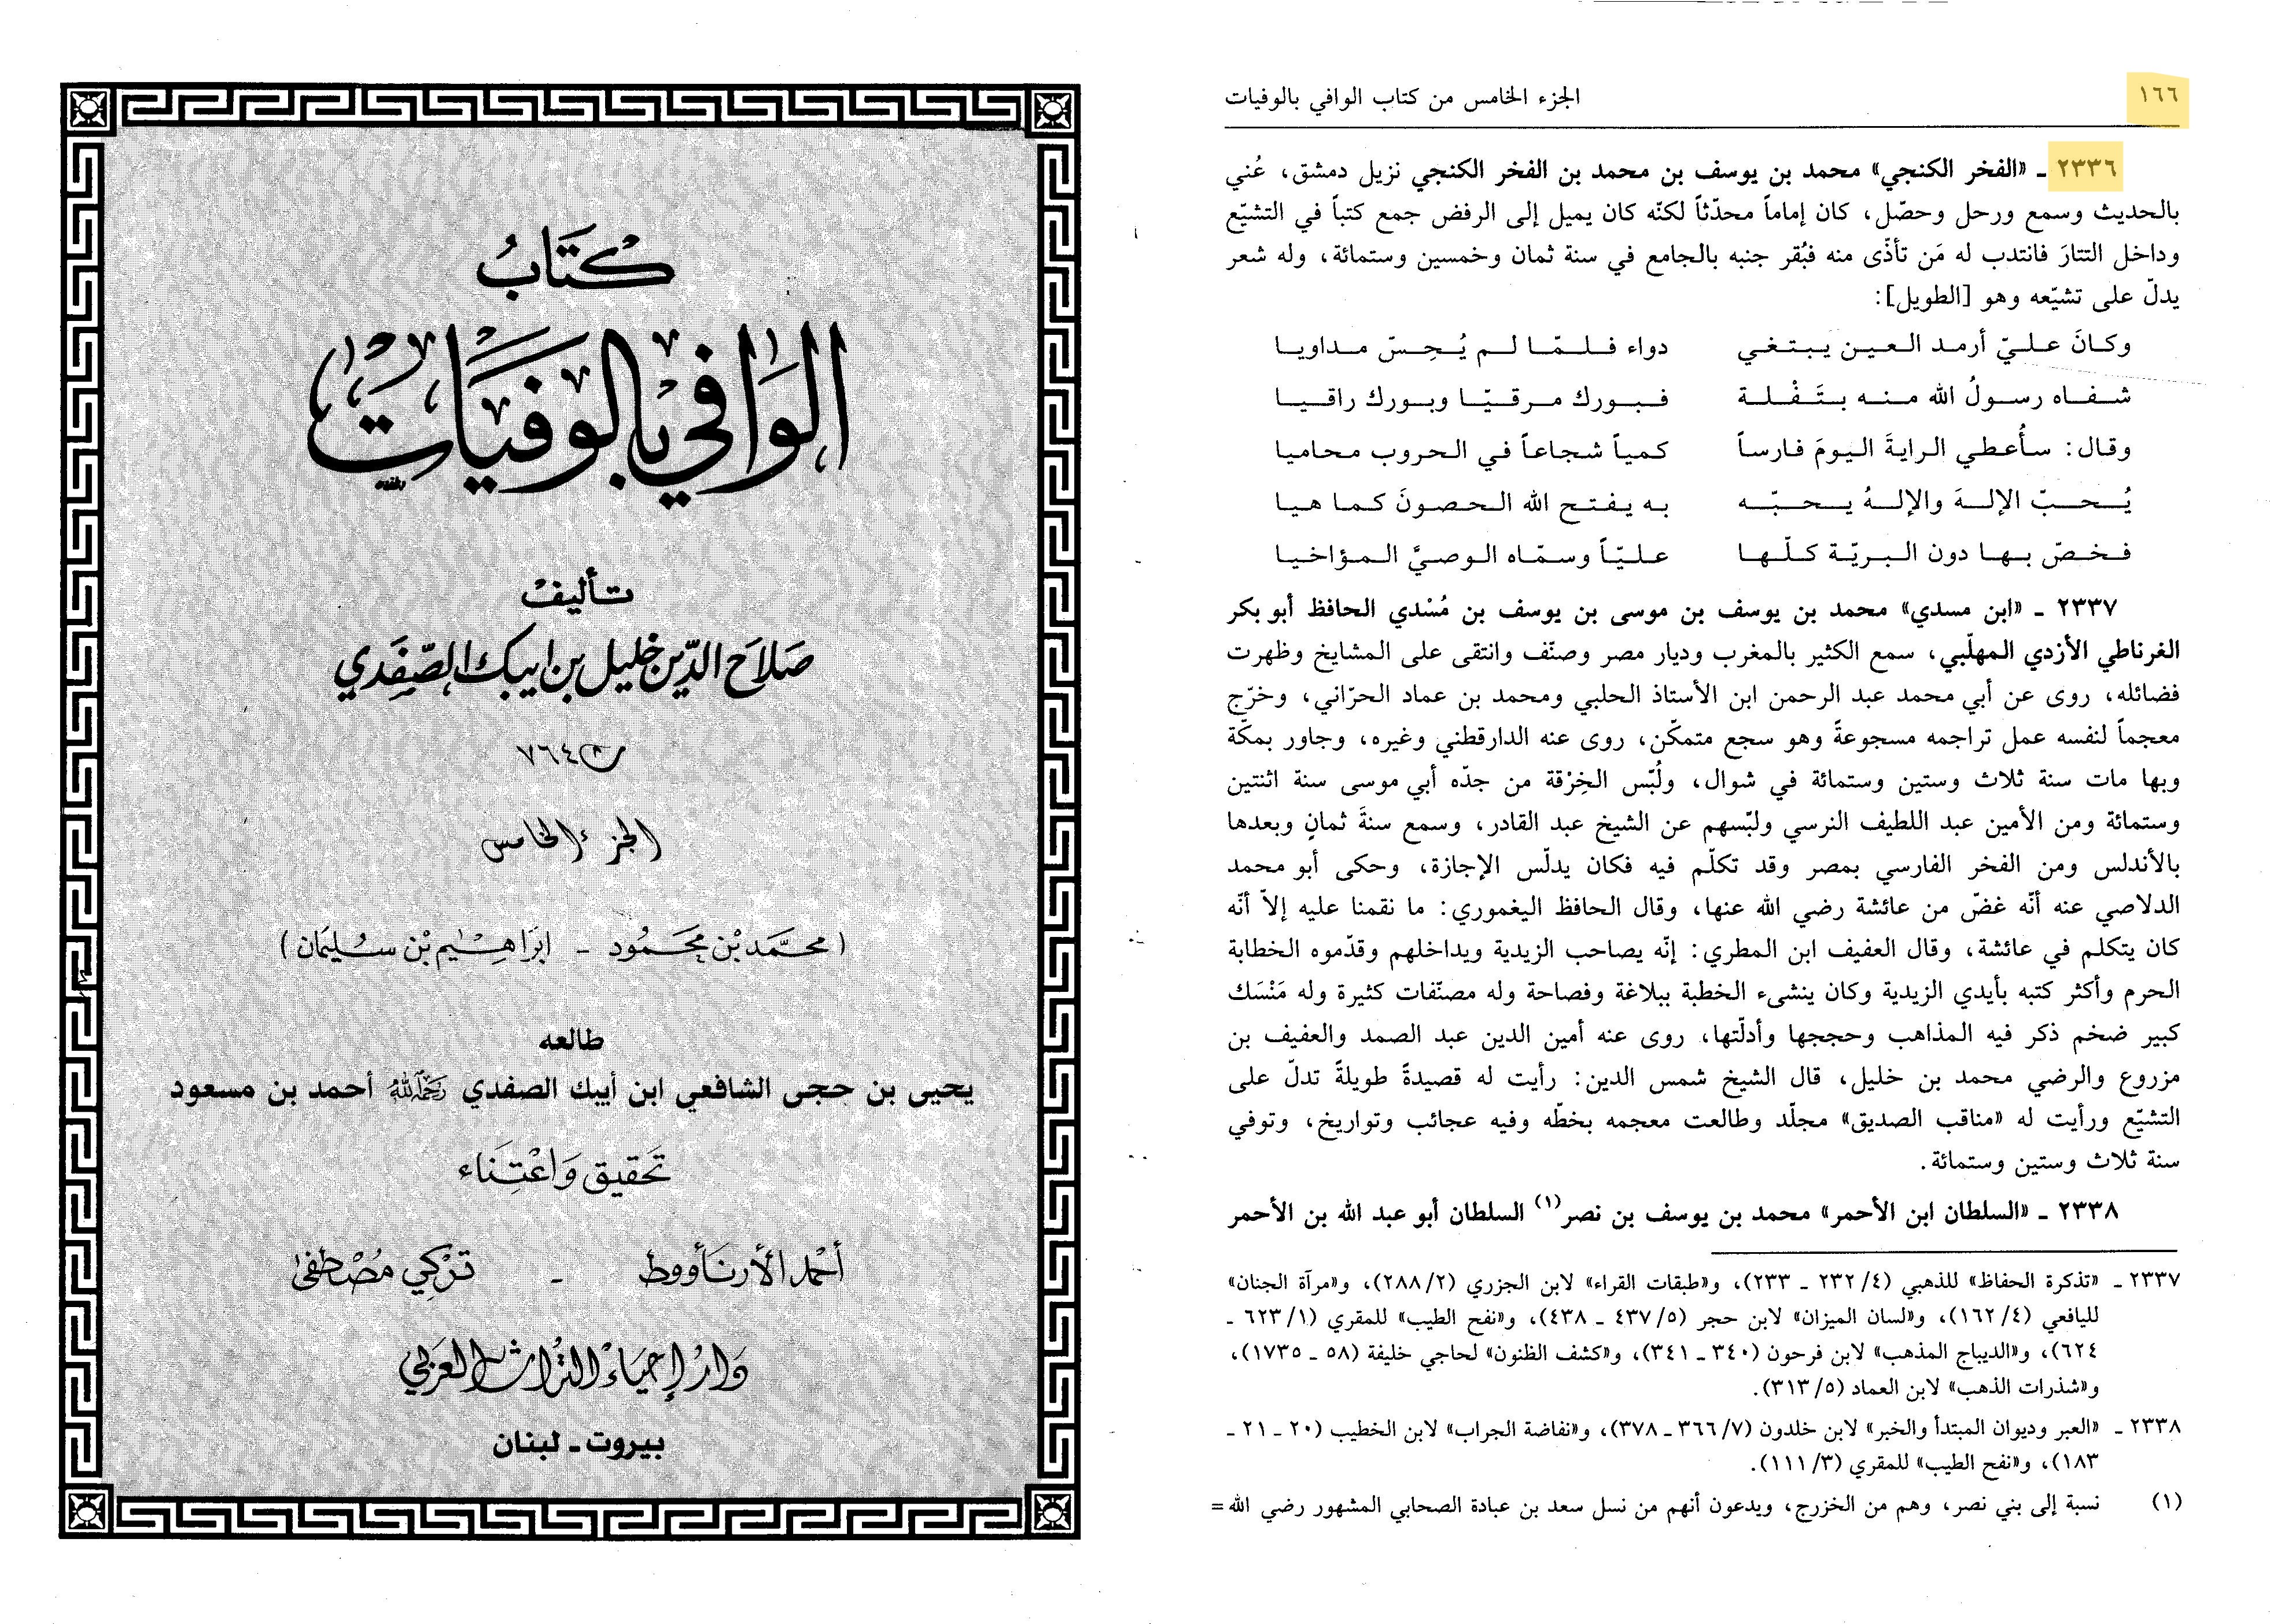 كتاب
الوافي بالوفيات
تأليف
صلاح الدين خليل بن ايبك الصفدي
ت ٧٦٤
الجزء الخامس
(محمد بن محمود - ابراهيم بن سليمان)
طالعه
يحيى بن حجى الشافعي ابن أيبك الصفدي رحمه الله أحمد بن مسعود
تحقيق واعتناء
أحمد الأرناؤوط - تركي مصطفى
دار إحياء التراث العربي
بيروت - لبنان
١٦٦ الجزء الخامس من كتاب الوافي بالوفيات
٢٣٣٦ - «الفخر الكنجي» محمد بن يوسف بن محمد بن الفخر الكنجي نزيل دمشق، عُني
بالحديث وسمع ورحل وحصّل، كان إماماً محدّثاً لكنّه كان يميل إلى الرفض جمع كتباً في التشيّع
وداخل التتارَ فانتدب له مَن تأذّى منه فبُقر جنبه بالجامع في سنة ثمان وخمسين وستمائة، وله شعر
يدلّ على تشيّعه وهو [الطويل]:
وكانَ عليّ أرمد العين يبتغي دواء فلمّا لم يُحِسّ مداويا
شفاه رسولُ الله منه بتَفْلة فبورك مرقيّا وبورك راقيا
وقال: سأُعطي الرايةَ اليومَ فارساً كمياً شجاعاً في الحروب محاميا
يُحبّ الإلهَ والإلهُ يحبّه به يفتح الله الحصونَ كما هيا
فخصّ بها دون البريّة كلّها عليّاً وسمّاه الوصيَّ المؤاخيا
٢٣٣٧ - «ابن مسدي» محمد بن يوسف بن موسى بن يوسف بن مُسْدي الحافظ أبو بكر
الغرناطي الأزدي المهلّبي، سمع الكثير بالمغرب وديار مصر وصنّف وانتقى على المشايخ وظهرت
فضائله، روى عن أبي محمد عبد الرحمن ابن الأستاذ الحلبي ومحمد بن عماد الحرّاني، وخرّج
معجماً لنفسه عمل تراجمه مسجوعةً وهو سجع متمكّن، روى عنه الدارقطني وغيره، وجاور بمكّة
وبها مات سنة ثلاث وستين وستمائة في شوال، ولُبّس الخِرْقة من جدّه أبي موسى سنة اثنتين
وستمائة ومن الأمين عبد اللطيف النرسي ولبّسهم عن الشيخ عبد القادر، وسمع سنةَ ثمانٍ وبعدها
بالأندلس ومن الفخر الفارسي بمصر وقد تكلّم فيه فكان يدلّس الإجازة، وحكى أبو محمد
الدلاصي عنه أنّه غضّ من عائشة رضي الله عنها، وقال الحافظ اليغموري: ما نقمنا عليه إلاّ أنّه
كان يتكلم في عائشة، وقال العفيف ابن المطري: إنّه يصاحب الزيدية ويداخلهم وقدّموه الخطابة
الحرم وأكثر كتبه بأيدي الزيدية وكان ينشىء الخطبة ببلاغة وفصاحة وله مصنّفات كثيرة وله مَنْسَك
كبير ضخم ذكر فيه المذاهب وحججها وأدلّتها، روى عنه أمين الدين عبد الصمد والعفيف بن
مزروع والرضي محمد بن خليل، قال الشيخ شمس الدين: رأيت له قصيدةً طويلةً تدلّ على
التشيّع ورأيت له «مناقب الصديق» مجلّد وطالعت معجمه بخطّه وفيه عجائب وتواريخ، وتوفي
سنة ثلاث وستين وستمائة.
٢٣٣٨ - «السلطان ابن الأحمر» محمد بن يوسف بن نصر(١) السلطان أبو عبد الله بن الأحمر
٢٣٣٧ - «تذكرة الحفاظ» للذهبي (٤/ ٢٣٢ - ٢٣٣)، و«طبقات القراء» لابن الجزري (٢/ ٢٨٨)، و«مرآة الجنان»
لليافعي (٤/ ١٦٢)، و«لسان الميزان» لابن حجر (٥/ ٤٣٧ - ٤٣٨)، و«نفح الطيب» للمقري (١/ ٦٢٣ -
٦٢٤)، و«الديباج المذهب» لابن فرحون (٣٤٠ - ٣٤١)، و«كشف الظنون» لحاجي خليفة (٥٨ - ١٧٣٥)،
و«شذرات الذهب» لابن العماد (٥/ ٣١٣).
٢٣٣٨ - «العبر وديوان المبتدأ والخبر» لابن خلدون (٧/ ٣٦٦ - ٣٧٨)، و«نفاضة الجراب» لابن الخطيب (٢٠ - ٢١ -
١٨٣)، و«نفح الطيب» للمقري (٣/ ١١١).
(١) نسبة إلى بني نصر، وهم من الخزرج، ويدعون أنهم من نسل سعد بن عبادة الصحابي المشهور رضي الله =